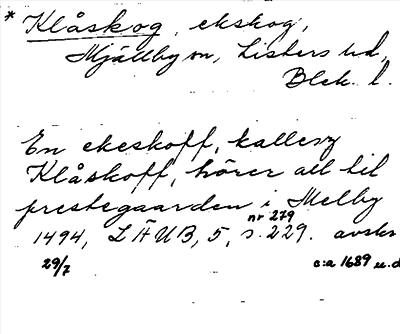 * Klåskog, ekskog,
Mjällby sn, Listers hd,
Blek. l.
En ekeskoff, kallesz
Klåskoff, hörer all til
prestegaarden i Melby
nr 279
1494, LÄUB, 5, s. 229. avskr
29/7 c:a 1689 u.d